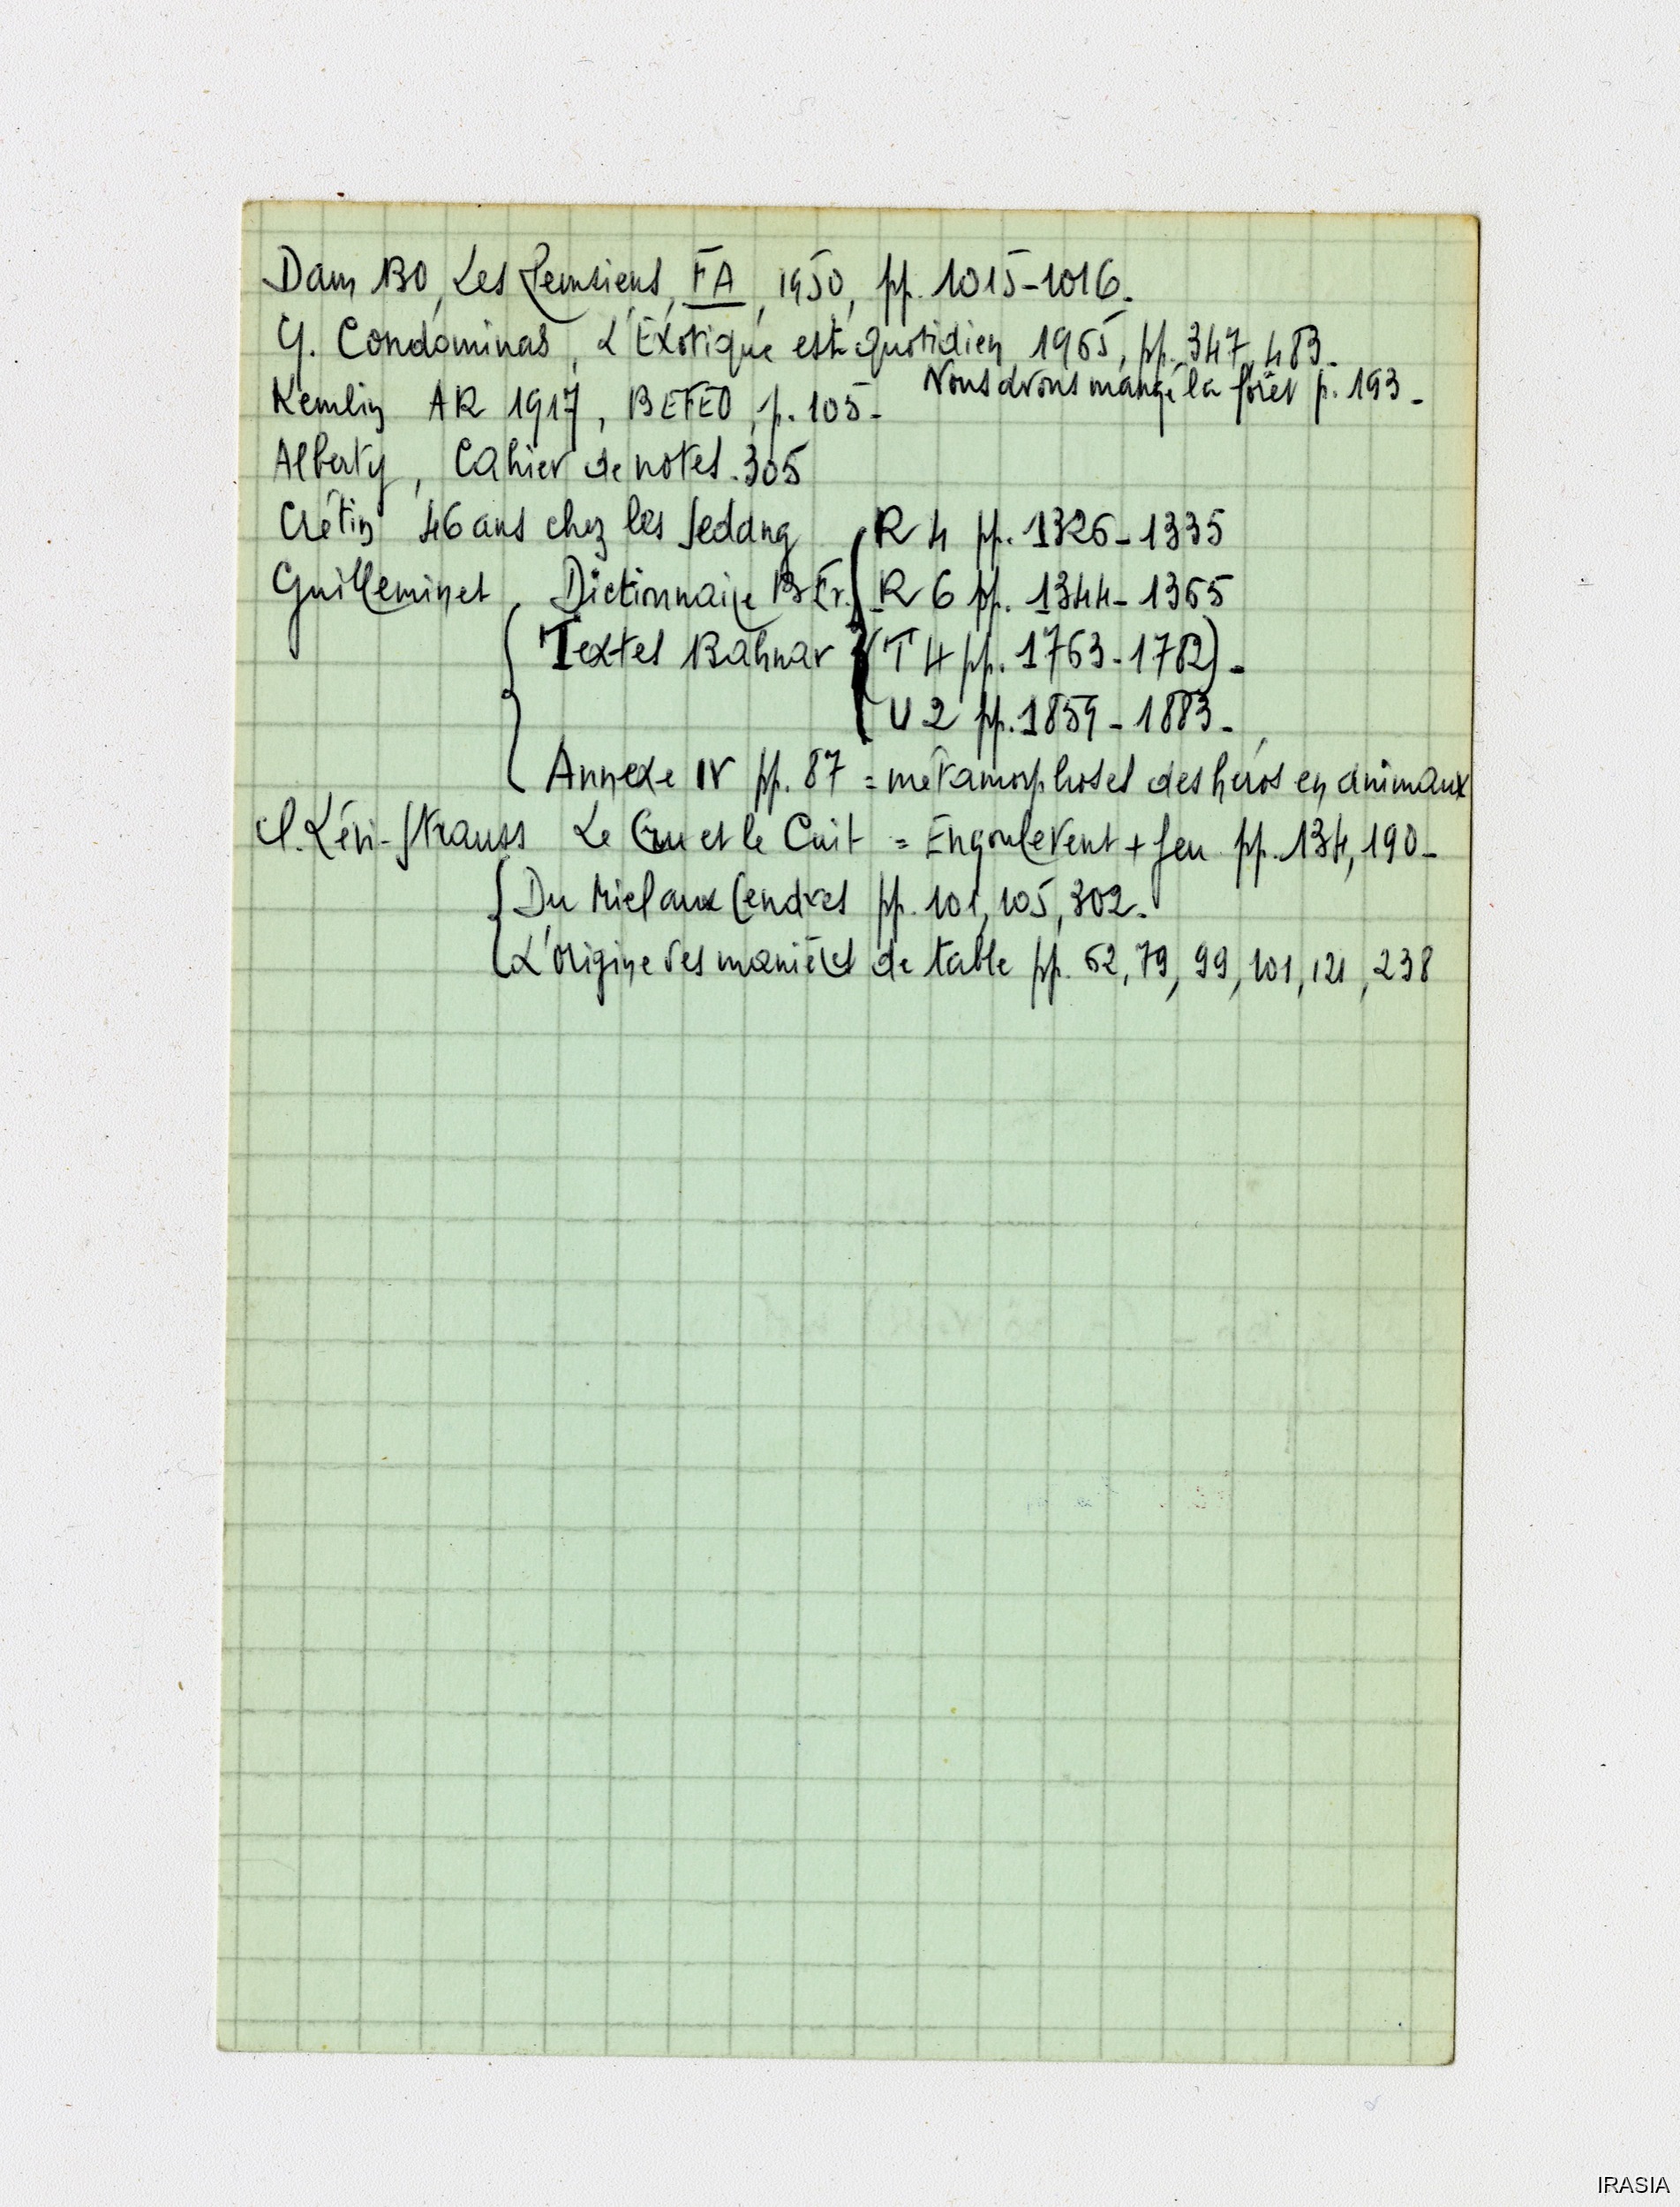 Dam BO, Les Pemsiens, FA, 1950, pp. 1015-1016.
G. Condominas, L'Exotique est quotidien 1965, pp. 347, 483.
Nous avons mangé la forêt p. 193.
Kemlin AR 1917, BEFEO, p. 105.
Alberty, Cahier de notes. 305
Crétin 46 ans chez les Sedang
R 4 pp. 1326-1335
Guilleminet, Dictionnaire B Fr. R 6 pp. 1344-1365
Textes Bahnar (T 4 pp. 1763-1782).
U 2 pp. 1859-1883.
Annexe IV pp. 87 = métamorphoses des héros en animaux
Cl. Lévi-Strauss Le Cru et le Cuit = Engoulevent + feu pp. 134, 190-
Du Miel aux Cendres pp. 101, 105, 302.
L'origine des manières de table pp. 62, 79, 99, 101, 121, 238
IRASIA